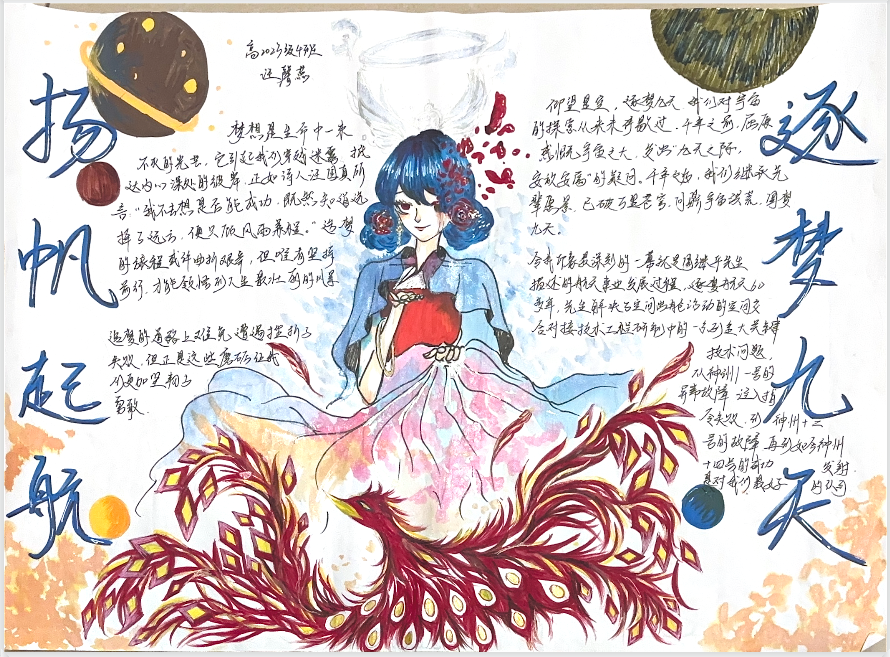 扬帆起航
逐梦九天
高2023级4班
汪馨燕
梦想是生命中一束
不灭的光芒，它引起我们穿越迷雾，抵
达内心深处的彼岸，正如诗人汪国真所
言："我不去想是否能成功，既然知道选
择了远方，便只顾风雨兼程。"追梦
的旅程或许曲折艰辛，但唯有坚持
前行，才能领悟到人生最壮丽的风景
追梦的道路上难免遭遇挫折与
失败，但正是这些磨砺让我
们更加坚韧与
勇敢.
仰望星空，逐梦九天 我们对宇宙
的探索从来未停歇过，千年之前，屈原
感慨宇宙之大，发出"九天之际，
安放安属"的疑问。千年之后，我们继承先
辈愿景，已破万里苍穹，问鼎宇宙洪荒，圆梦
九天。
令我印象最深刻的一幕就是
描述的航天事业发展过程，逐梦航天60
多年，先生解决与空间出舱活动的空间交
会对接技术工程研制中的一系列重大关键
技术问题，
从神州一号的
异常故障
令失败，到神州十二
号的故障 再到如今神州
十四号的成功 发射
是对我们最好的